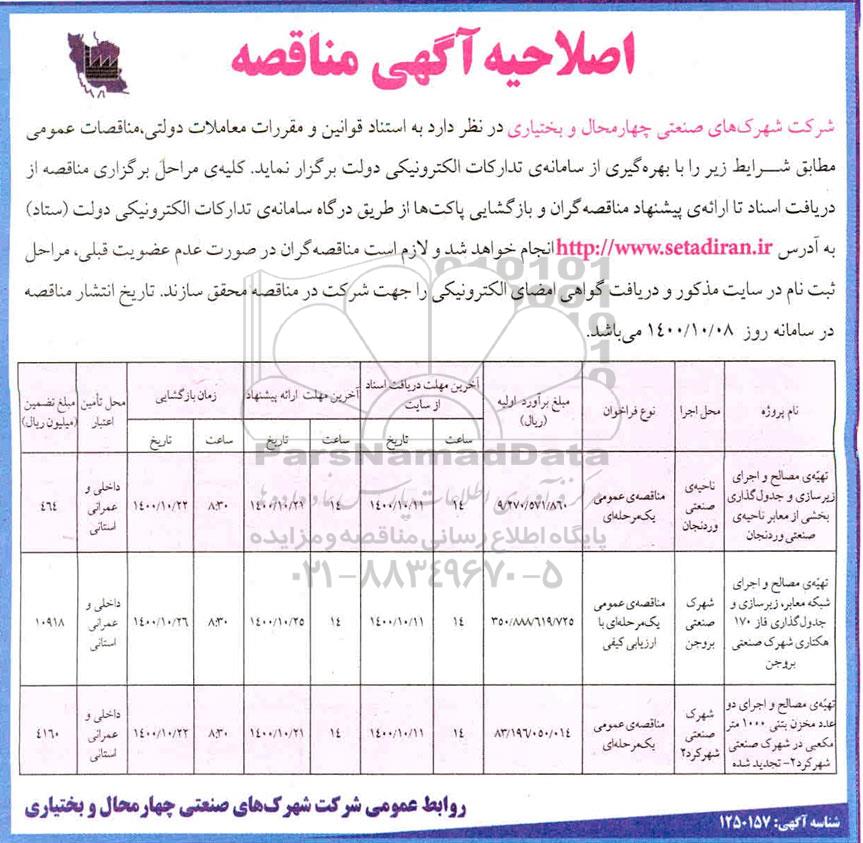 اصلاحیه آگهی مناقصه
شرکت شهرک‌های صنعتی چهارمحال و بختیاری در نظر دارد به استناد قوانین و مقررات معاملات دولتی،مناقصات عمومی
مطابق شـــرایط زیر را با بهره‌گیری از سامانه‌ی تدارکات الکترونیکی دولت برگزار نماید. کلیه‌ی مراحل برگزاری مناقصه از
دریافت اسناد تا ارائه‌ی پیشنهاد مناقصه‌گران و بازگشایی پاکت‌ها از طریق درگاه سامانه‌ی تدارکات الکترونیکی دولت (ستاد)
به آدرس http://www.setadiran.ir انجام خواهد شد و لازم است مناقصه‌گران در صورت عدم عضویت قبلی، مراحل
ثبت نام در سایت مذکور و دریافت گواهی امضای الکترونیکی را جهت شرکت در مناقصه محقق سازند. تاریخ انتشار مناقصه
در سامانه روز ۱۴۰۰/۱۰/۰۸ می‌باشد.
نام پروژه
محل اجرا
نوع فراخوان
مبلغ برآورد اولیه
(ریال)
آخرین مهلت دریافت اسناد
از سایت
آخرین مهلت ارائه پیشنهاد
زمان بازگشایی
محل تأمین
اعتبار
مبلغ تضمین
(میلیون ریال)
ساعت تاریخ ساعت تاریخ ساعت تاریخ
تهیّه‌ی مصالح و اجرای
زیرسازی و جدول‌گذاری
بخشی از معابر ناحیه‌ی
صنعتی وردنجان
ناحیه‌ی
صنعتی
وردنجان
مناقصه‌ی عمومی
یک‌مرحله‌ای
۹/۲۷۰/۵۷۱/۸۶۰
۱۴ ۱۴۰۰/۱۰/۱۱ ۱۴ ۱۴۰۰/۱۰/۲۱ ۸:۳۰ ۱۴۰۰/۱۰/۲۲
داخلی و
عمرانی
استانی
۴۶۴
تهیّه‌ی مصالح و اجرای
شبکه معابر، زیرسازی و
جدول‌گذاری فاز ۱۷۰
هکتاری شهرک صنعتی
بروجن
شهرک
صنعتی
بروجن
مناقصه‌ی عمومی
یک‌مرحله‌ای با
ارزیابی کیفی
۳۵۰/۸۸۸/۶۱۹/۷۲۵
۱۴ ۱۴۰۰/۱۰/۱۱ ۱۴ ۱۴۰۰/۱۰/۲۵ ۸:۳۰ ۱۴۰۰/۱۰/۲۶
داخلی و
عمرانی
استانی
۱۰۹۱۸
تهیّه‌ی مصالح و اجرای دو
عدد مخزن بتنی ۱۰۰۰ متر
مکعبی در شهرک صنعتی
شهرکرد۲- تجدید شده
شهرک
صنعتی
شهرکرد۲
مناقصه‌ی عمومی
یک‌مرحله‌ای
۸۳/۱۹۶/۰۵۰/۰۱۴
۱۴ ۱۴۰۰/۱۰/۱۱ ۱۴ ۱۴۰۰/۱۰/۲۱ ۸:۳۰ ۱۴۰۰/۱۰/۲۲
داخلی و
عمرانی
استانی
۴۱۶۰
ParsNamadData
مرکز فرآوری اطلاعات پارس نماد داده‌ها
پایگاه اطلاع رسانی مناقصه و مزایده
۰۲۱-۸۸۳۴۹۶۷۰-۵
روابط عمومی شرکت شهرک‌های صنعتی چهارمحال و بختیاری
شناسه آگهی: ۱۲۵۰۱۵۷